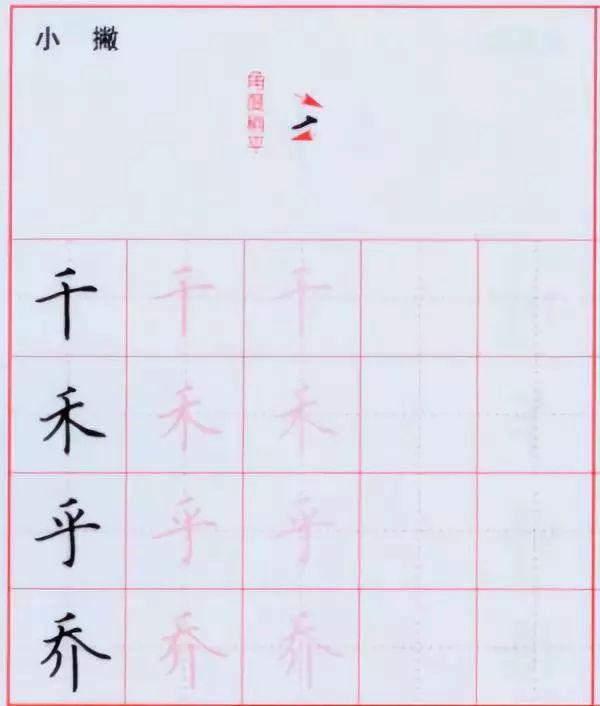 小撇
角度稍平
千 千 千
禾 禾 禾
乎 乎 乎
乔 乔 乔